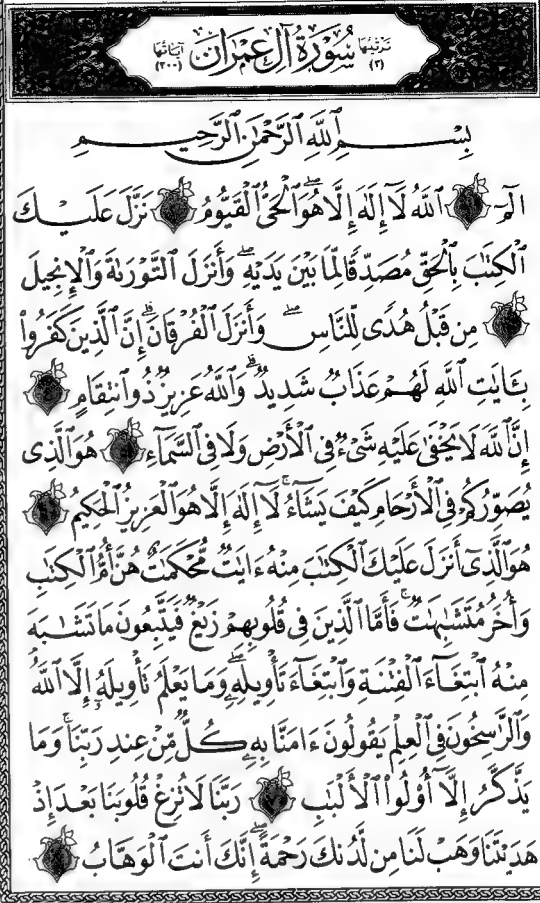 ترتيبها (٣) سُورَةُ آلِ عِمْرَان آياتها (٢٠٠)
بِسْمِ ٱللَّهِ ٱلرَّحْمَٰنِ ٱلرَّحِيمِ
الٓمٓ ٱللَّهُ لَآ إِلَٰهَ إِلَّا هُوَ ٱلْحَىُّ ٱلْقَيُّومُ نَزَّلَ عَلَيْكَ
ٱلْكِتَٰبَ بِٱلْحَقِّ مُصَدِّقًا لِّمَا بَيْنَ يَدَيْهِ ۖ وَأَنزَلَ ٱلتَّوْرَىٰةَ وَٱلْإِنجِيلَ
مِن قَبْلُ هُدًى لِّلنَّاسِ ۖ وَأَنزَلَ ٱلْفُرْقَانَ ۗ إِنَّ ٱلَّذِينَ كَفَرُوا۟
بِـَٔايَٰتِ ٱللَّهِ لَهُمْ عَذَابٌ شَدِيدٌ ۗ وَٱللَّهُ عَزِيزٌ ذُو ٱنتِقَامٍ
إِنَّ ٱللَّهَ لَا يَخْفَىٰ عَلَيْهِ شَىْءٌ فِى ٱلْأَرْضِ وَلَا فِى ٱلسَّمَآءِ هُوَ ٱلَّذِى
يُصَوِّرُكُمْ فِى ٱلْأَرْحَامِ كَيْفَ يَشَآءُ ۚ لَآ إِلَٰهَ إِلَّا هُوَ ٱلْعَزِيزُ ٱلْحَكِيمُ
هُوَ ٱلَّذِىٓ أَنزَلَ عَلَيْكَ ٱلْكِتَٰبَ مِنْهُ ءَايَٰتٌ مُّحْكَمَٰتٌ هُنَّ أُمُّ ٱلْكِتَٰبِ
وَأُخَرُ مُتَشَٰبِهَٰتٌ ۖ فَأَمَّا ٱلَّذِينَ فِى قُلُوبِهِمْ زَيْغٌ فَيَتَّبِعُونَ مَا تَشَٰبَهَ
مِنْهُ ٱبْتِغَآءَ ٱلْفِتْنَةِ وَٱبْتِغَآءَ تَأْوِيلِهِۦ ۖ وَمَا يَعْلَمُ تَأْوِيلَهُۥٓ إِلَّا ٱللَّهُ ۗ
وَٱلرَّٰسِخُونَ فِى ٱلْعِلْمِ يَقُولُونَ ءَامَنَّا بِهِۦ كُلٌّ مِّنْ عِندِ رَبِّنَا ۗ وَمَا
يَذَّكَّرُ إِلَّآ أُو۟لُوا۟ ٱلْأَلْبَٰبِ رَبَّنَا لَا تُزِغْ قُلُوبَنَا بَعْدَ إِذْ
هَدَيْتَنَا وَهَبْ لَنَا مِن لَّدُنكَ رَحْمَةً ۚ إِنَّكَ أَنتَ ٱلْوَهَّابُ